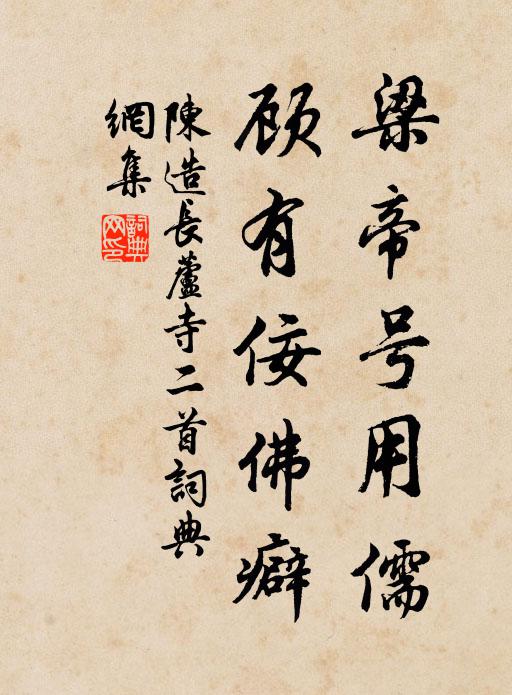 梁帝号用儒
顾有佞佛癖
陳造長蘆寺二首詞典
網集
詞典網印